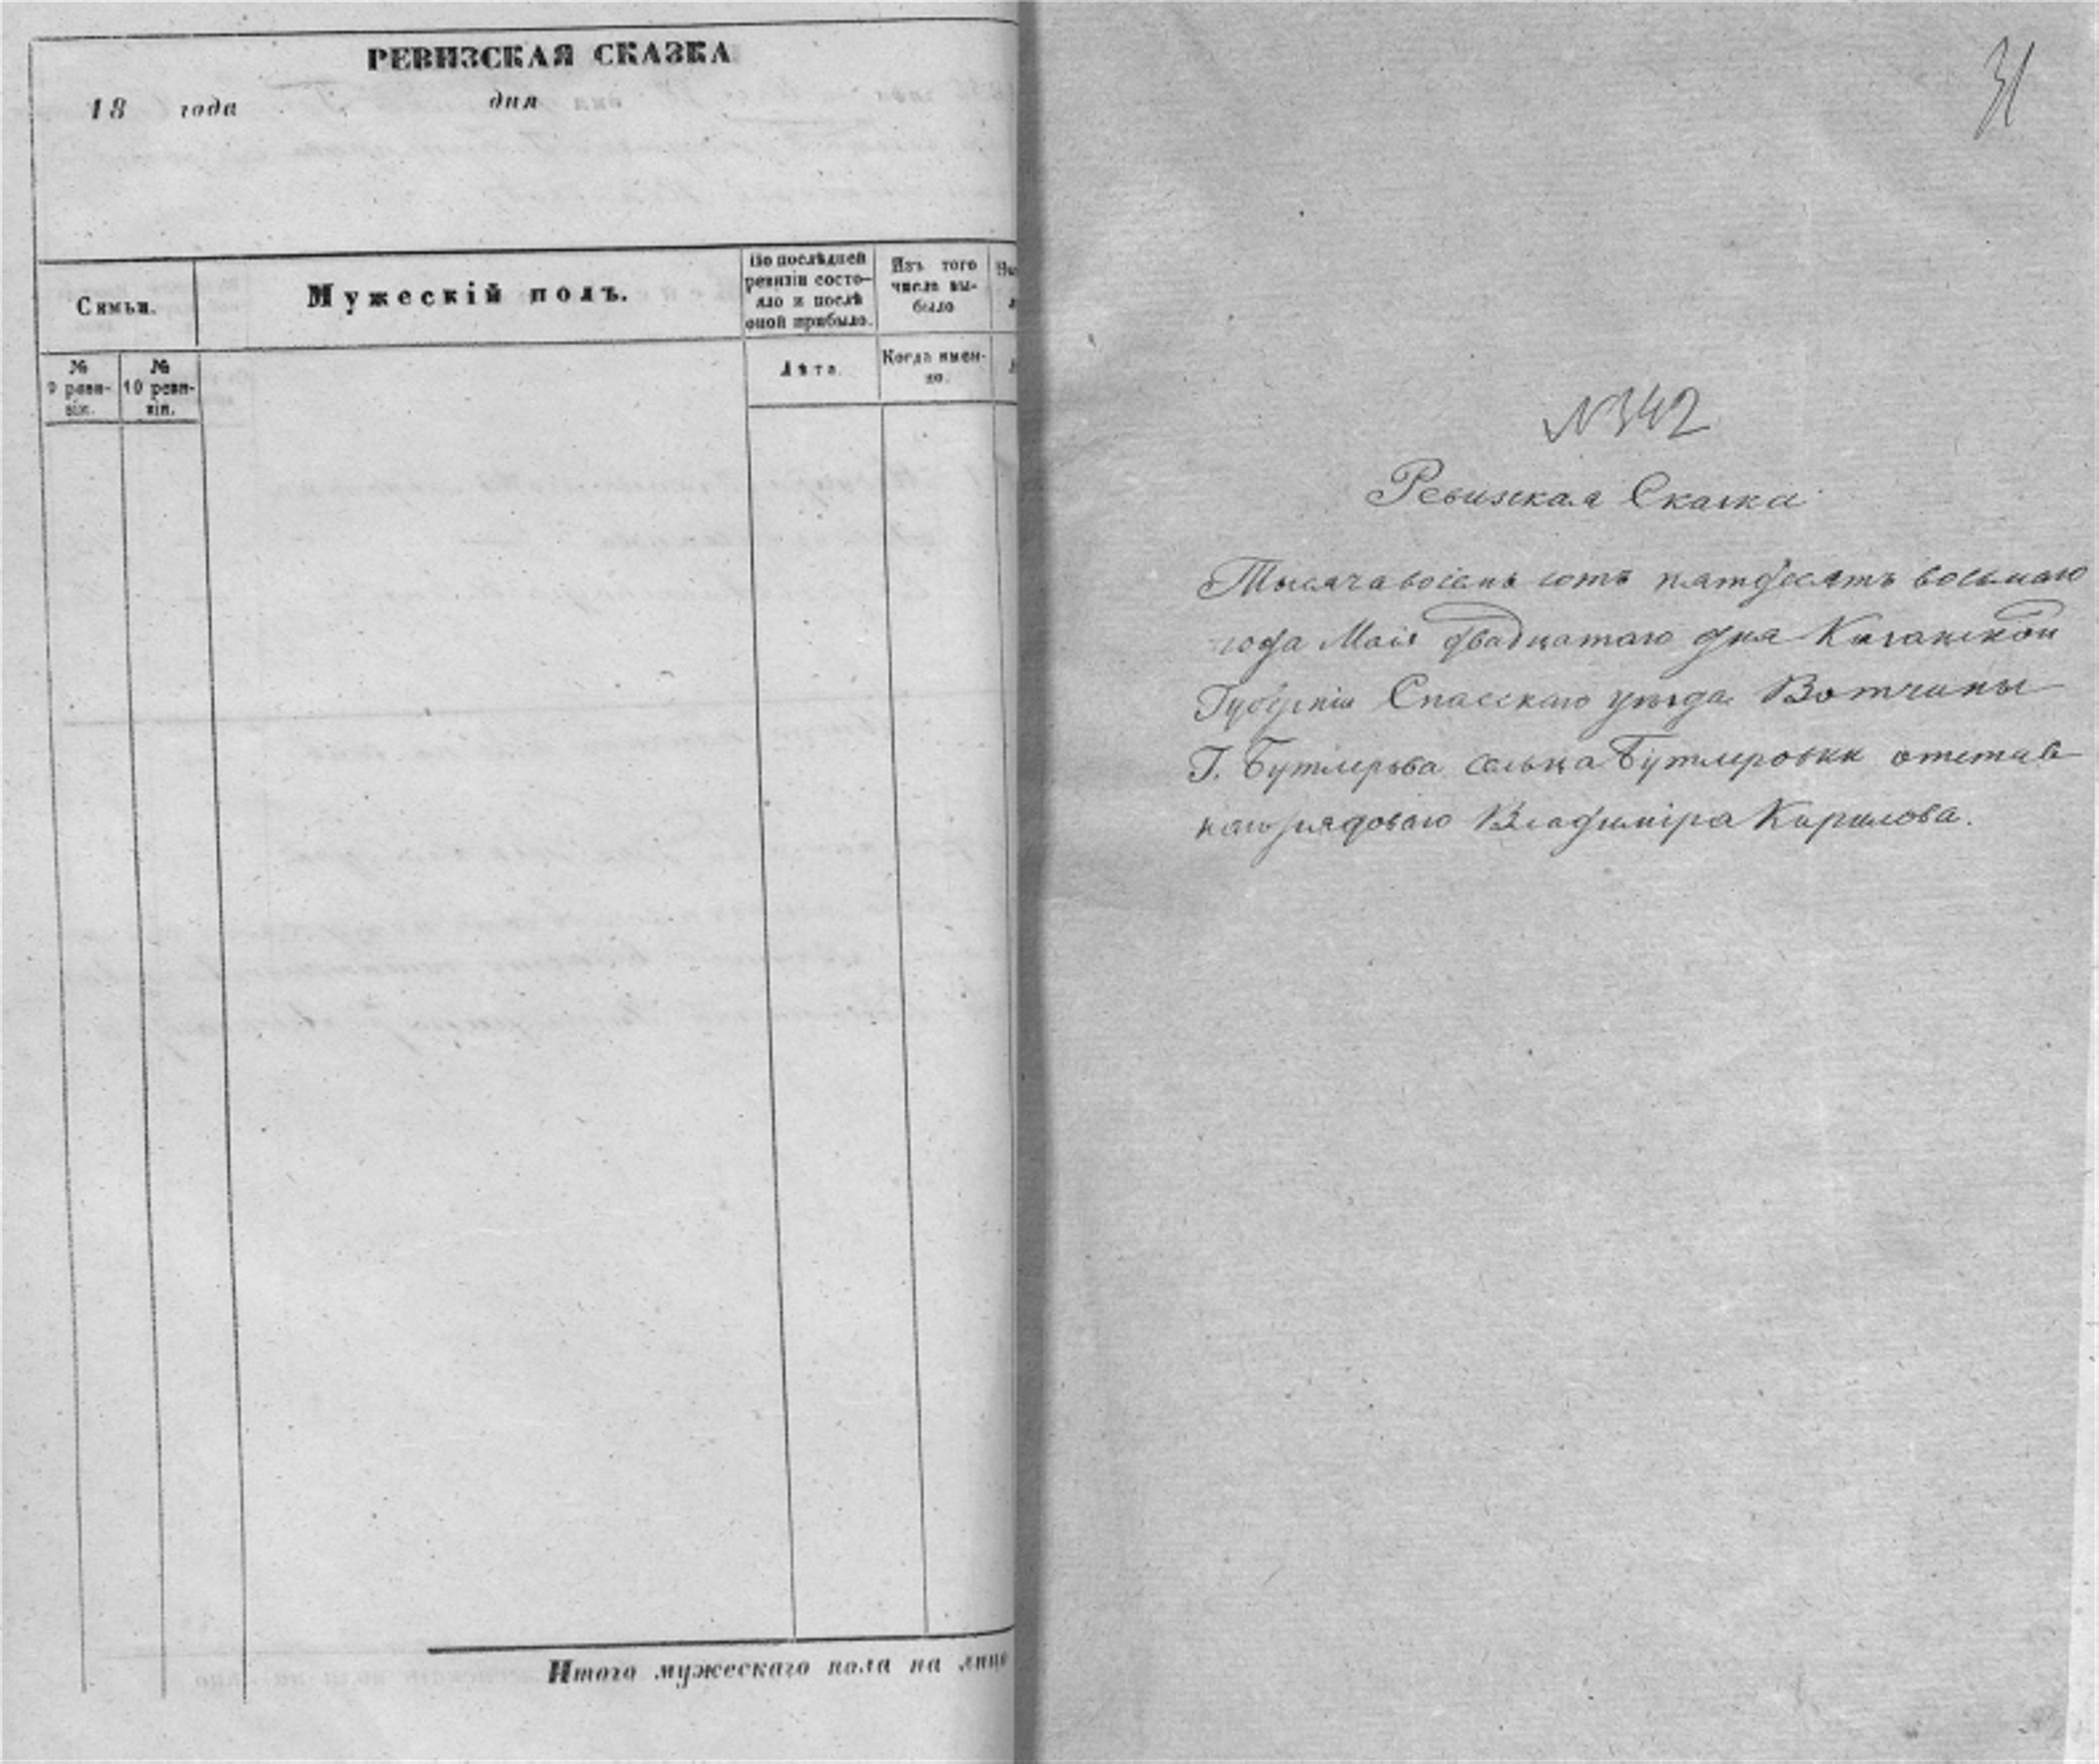 РЕВИЗСКАЯ СКАЗКА
18 года дня
Семьи.
Мужескій полъ.
По послѣдней
ревизіи состо-
яло и послѣ
оной прибыло.
Изъ того
числа вы-
было
№
9 реви-
зіи.
№
10 реви-
зіи.
Лѣта.
Когда имен-
но.
Итого мужескаго пола на лицо
31
№342
Ревизская Сказка
Тысяча восемь сотъ пятдесятъ восьмаго
года Маія двадцатаго дня Казанской
Губерніи Спасскаго уѣзда Вотчины
Г. Бутлерова сельца Бутлеровки отстав
наго рядоваго Владиміра Кирилова.